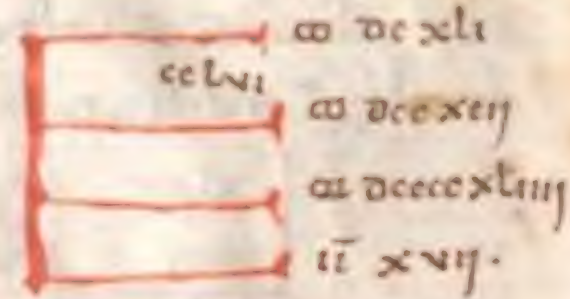 ꝏ dc xli
cclvi
ꝏ dcc xcij
ꝏ dcccc xliiij
ii̅ xvij.